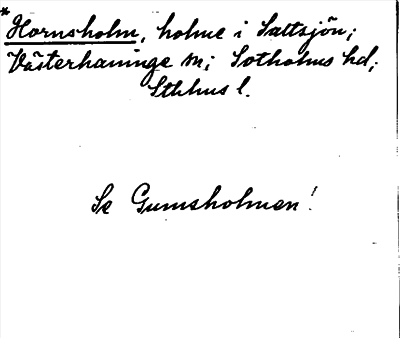 *Hornsholm, holme i Saltsjön;
Västerhaninge sn; Sotholms hd;
Sthlms l.
Se Gumsholmen!